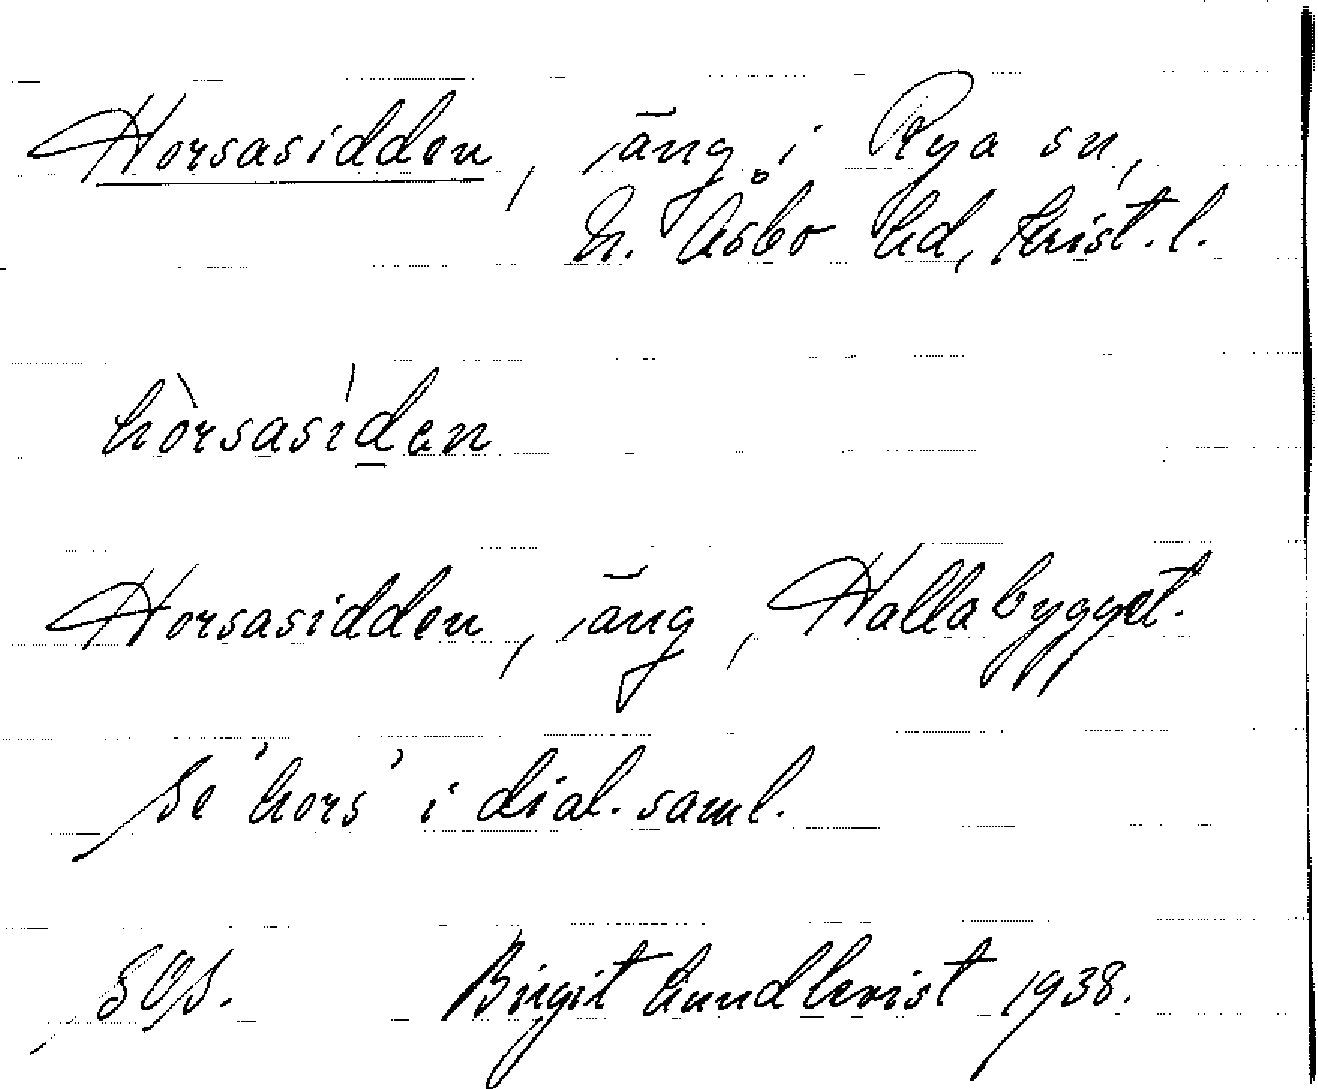 Horsasidden, äng i Rya sn,
N. Åsbo hd, Krist. l.
hòrsasíden
Horsasidden, äng, Hallabygget.
Se 'hors' i dial. saml.
SOS. Birgit Lundkvist 1938.